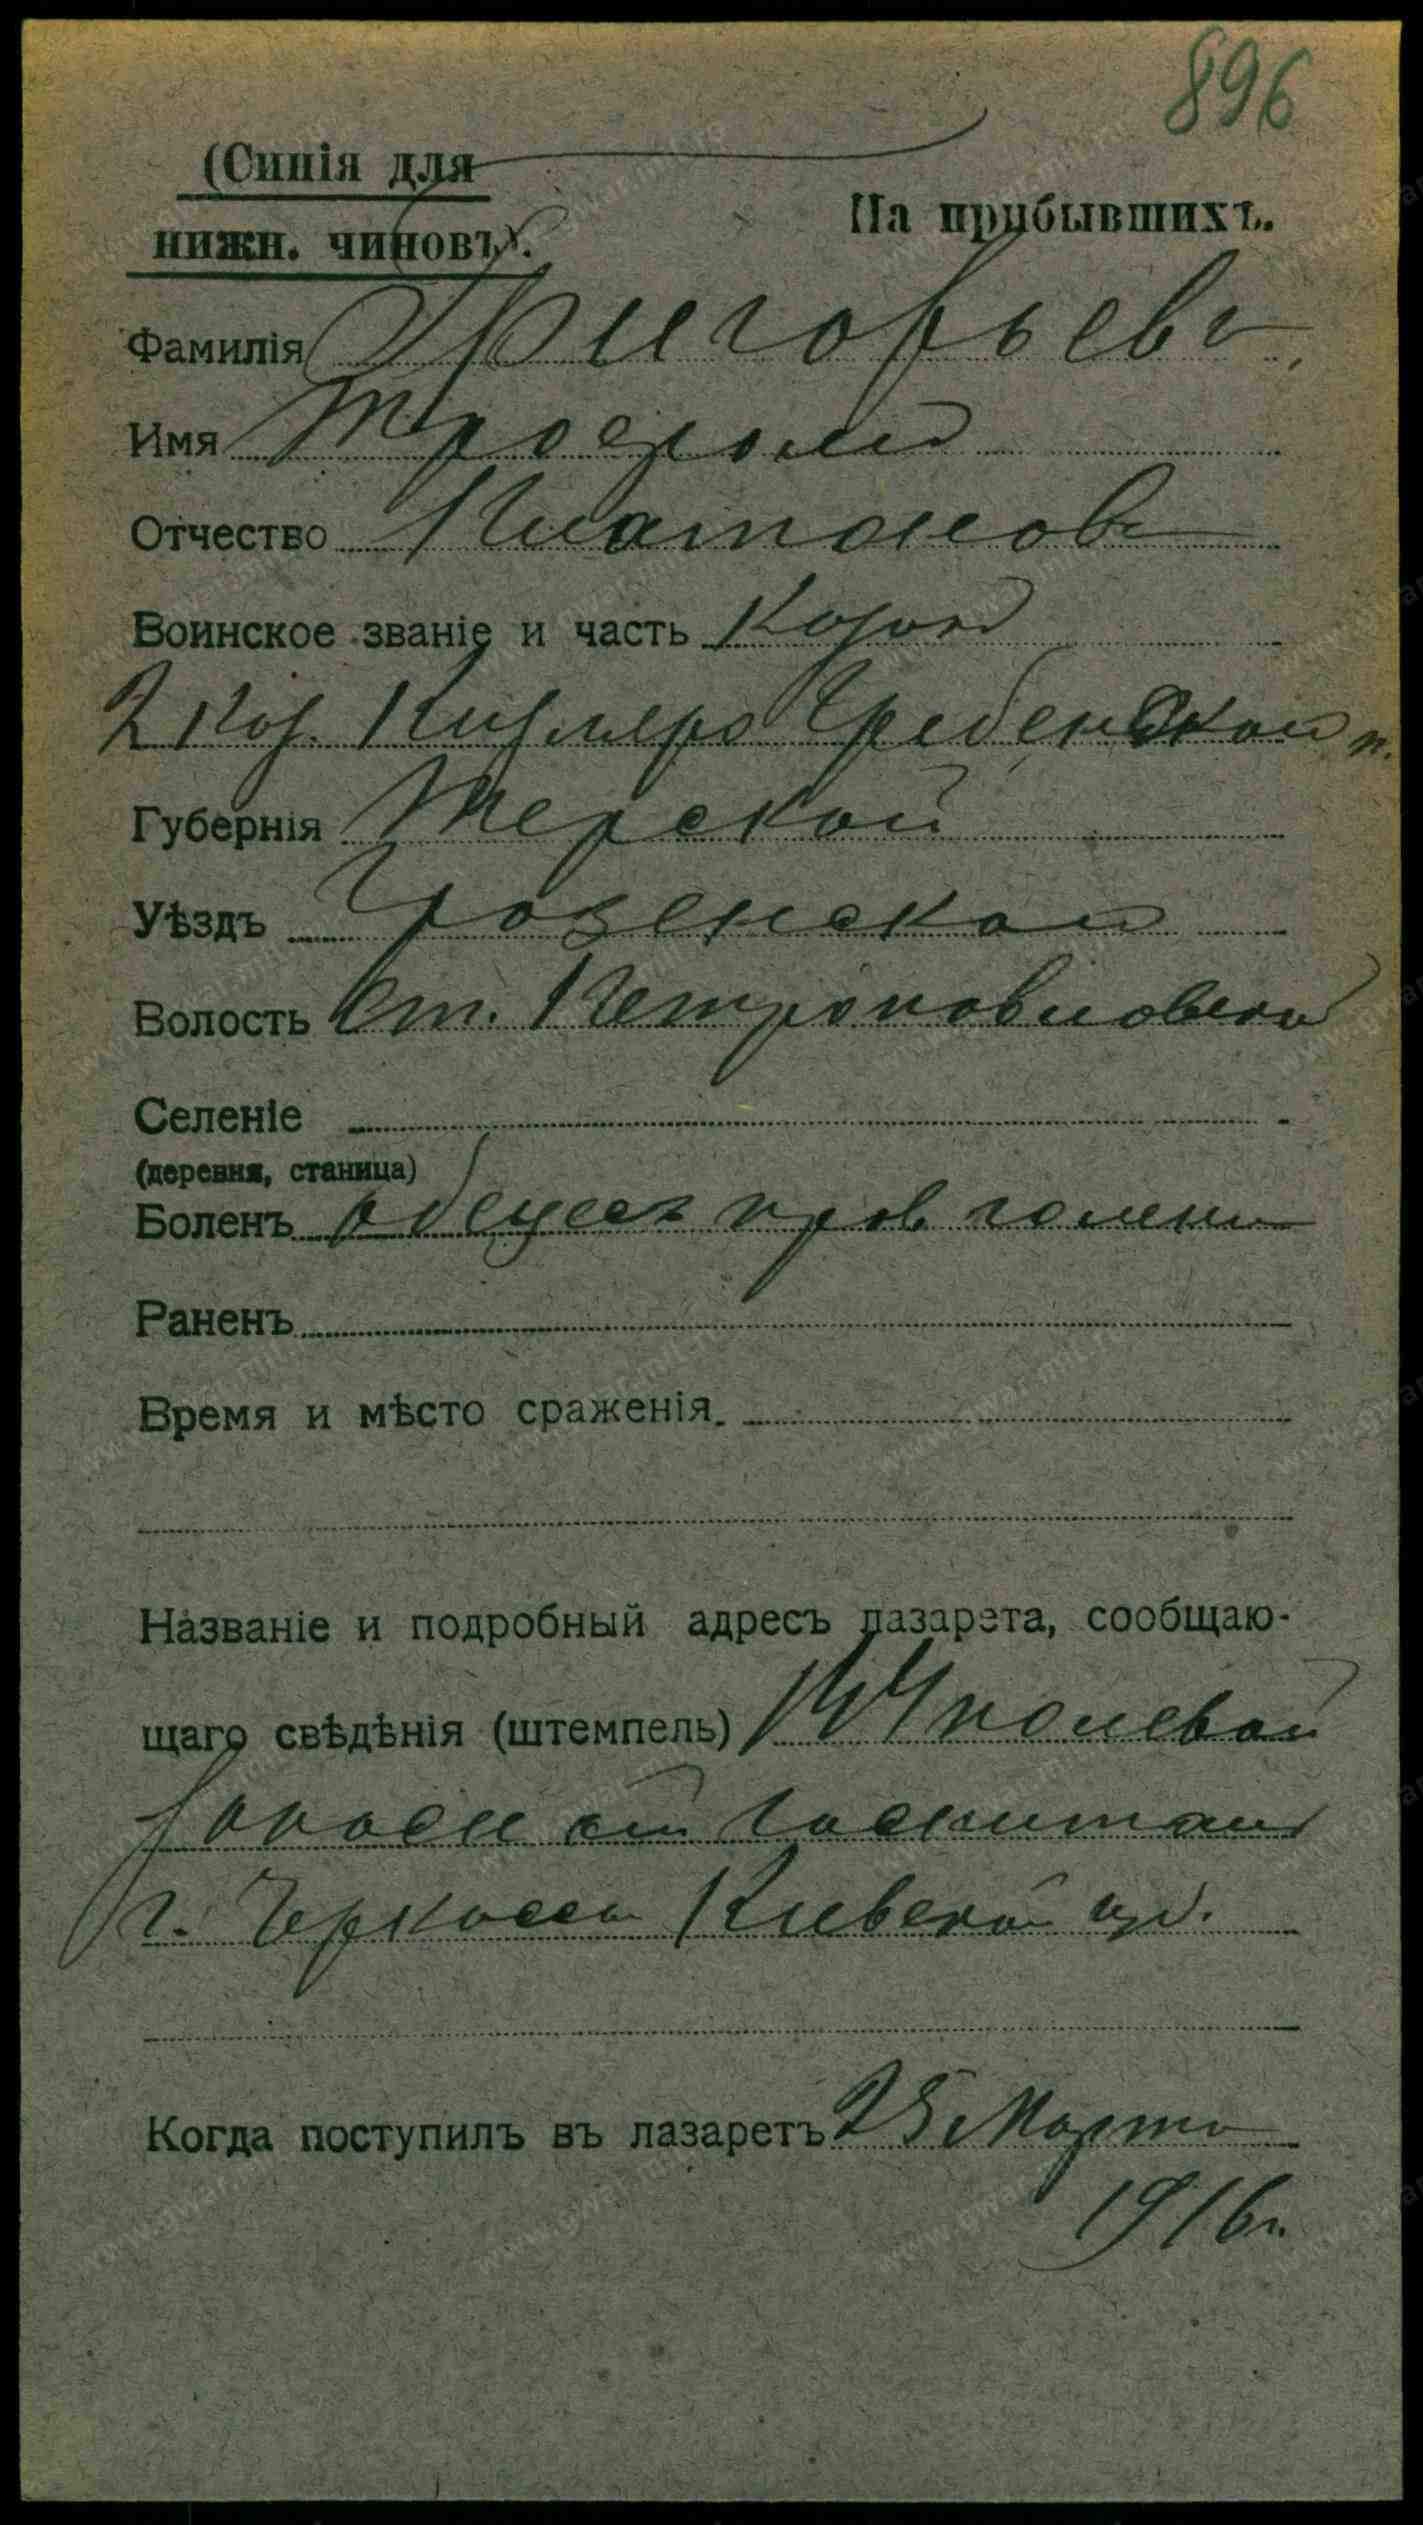 896
(Синія для
нижн. чиновъ).
На прибывшихъ.
Фамилія Григорьевъ
Имя Трофимъ
Отчество Платоновъ
Воинское званіе и часть Козакъ
2 Коз. Кизляро Гребенской п.
Губернія Терской
Уѣздъ Грозенской
Волость Ст. Петропавловской
Селеніе
(деревня, станица)
Боленъ абсцесъ прав голени
Раненъ
Время и мѣсто сраженія.
Названіе и подробный адресъ лазарета, сообщаю-
щаго свѣдѣнія (штемпель) полевой
запасной госпиталь
г. Черкассы Киевской губ.
Когда поступилъ въ лазаретъ 25 Марта
1916 г.